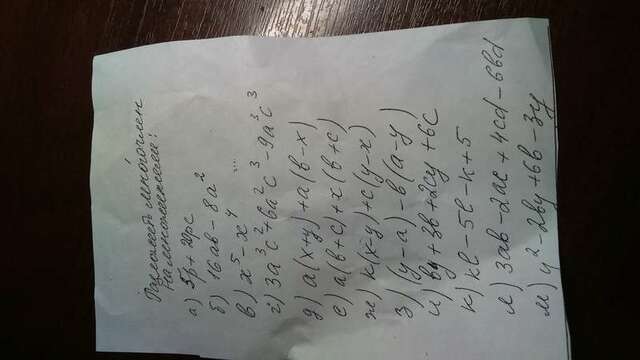 Разложить многочлен
на множители:
а) 5p + 20pc
б) 16ab - 8a²
в) x⁵ - x⁴
г) 3a³c² + 6a²c³ - 9a²c³
д) a(x+y) + a(b-x)
е) a(b+c) + x(b+c)
ж) k(x-y) + c(y-x)
з) (y-a) - b(a-y)
и) by + 3b + 2cy + 6c
к) kl - 5l - k + 5
л) 3ab - 2ac + 4cd - 6bd
м) y² - 2by + 6b - 3y